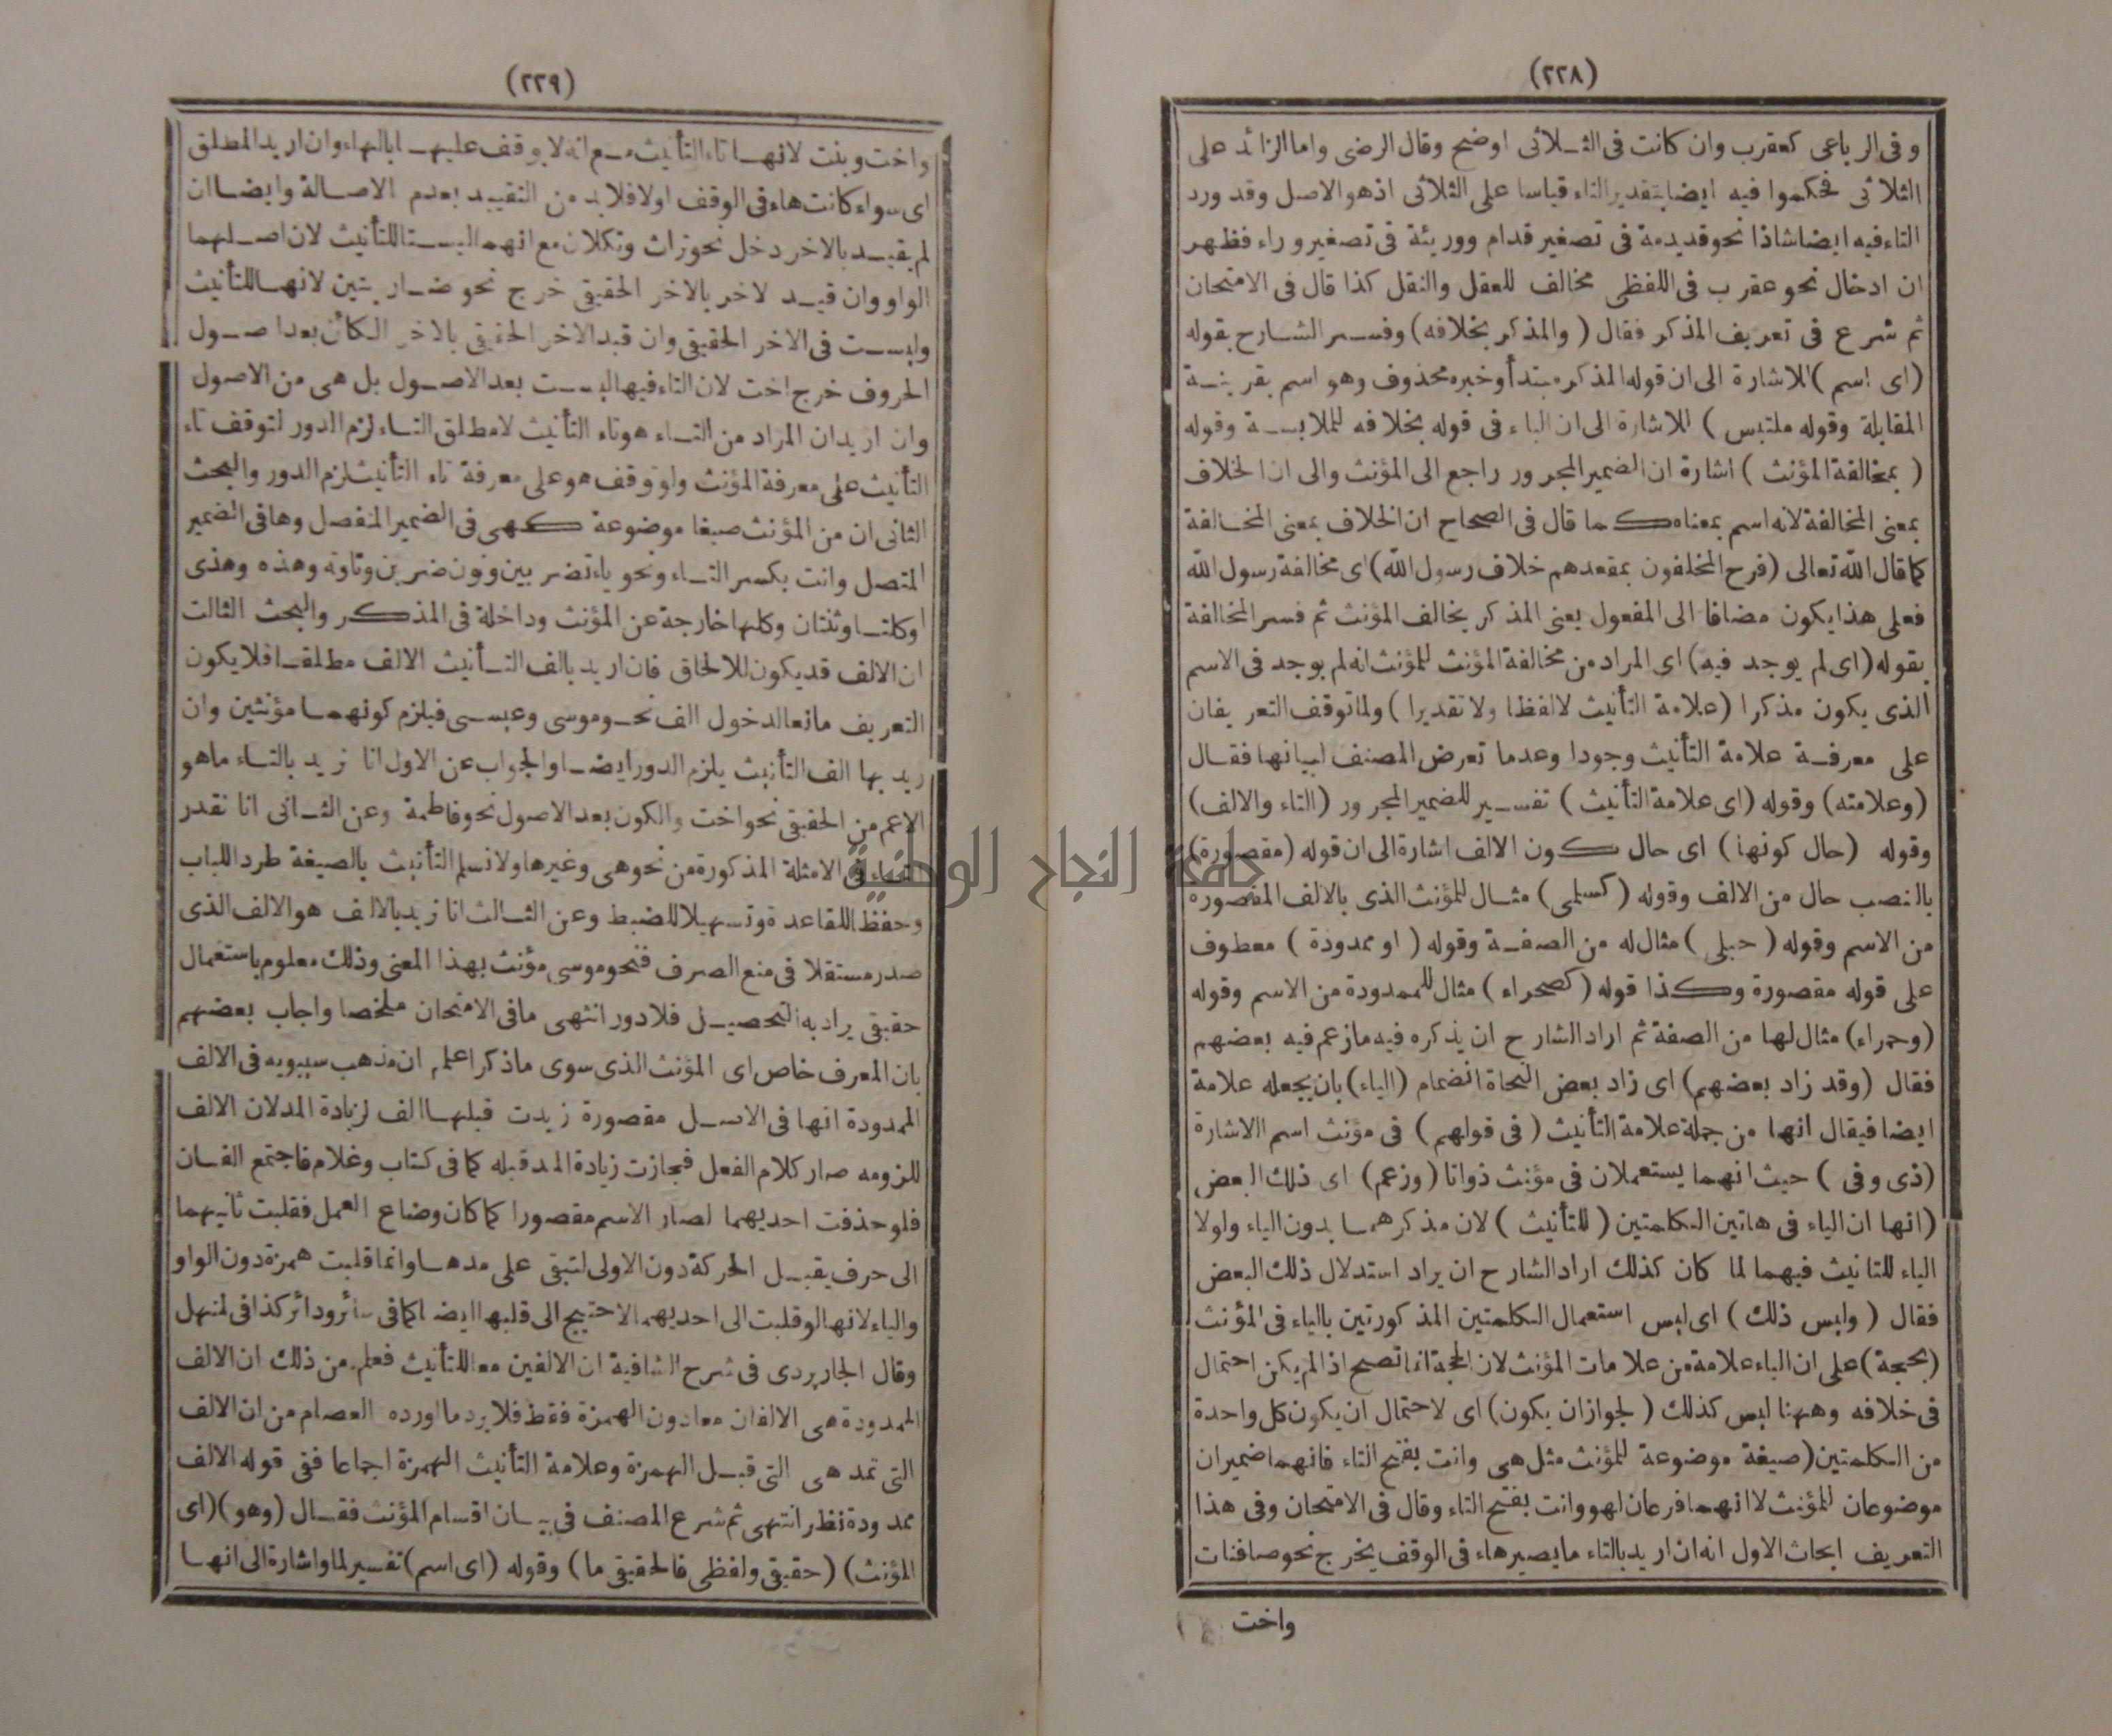 (٢٢٨)
وفى الرباعى كعقرب وان كانت فى الثلاثى اوضح وقال الرضى واما الزائد على
الثلاثى فحكموا فيه ايضا بتقدير التاء قياسا على الثلاثى اذ هو الاصل وقد ورد
التاء فيه ايضا شاذا نحو قديديمة فى تصغير قدام ووريئة فى تصغير وراء فظهر
ان ادخال نحو عقرب فى اللفظى مخالف للعقل والنقل كذا قال فى الامتحان
ثم شرع فى تعريف المذكر فقال (والمذكر بخلافه) وفسر الشارح بقوله
(اى اسم) للاشارة الى ان قوله المذكر مبتدأ وخبره محذوف وهو اسم بقرينة
المقابلة وقوله ملتبس) للاشارة الى ان الباء فى قوله بخلافه للملابسة وقوله
(بمخالفة المؤنث) اشارة ان الضمير المجرور راجع الى المؤنث والى ان الخلاف
بمعنى المخالفة لانه اسم بمعناه كما قال فى الصحاح ان الخلاف بمعنى المخالفة
كما قال الله تعالى (فرح المخلفون بمقعدهم خلاف رسول الله) اى مخالفة رسول الله
فعلى هذا يكون مضافا الى المفعول يعنى المذكر يخالف المؤنث ثم فسر المخالفة
بقوله (اى لم يوجد فيه) اى المراد من مخالفة المؤنث للمؤنث انه لم يوجد فى الاسم
الذى يكون مذكرا (علامة التأنيث لا لفظا ولا تقديرا) ولما توقف التعريفان
على معرفة علامة التأنيث وجودا وعدما تعرض المصنف لبيانها فقال
(وعلامته) وقوله (اى علامة التأنيث) تفسير للضمير المجرور (التاء والالف)
وقوله (حال كونها) اى حال كون الالف اشارة الى ان قوله (مقصورة)
بالنصب حال من الالف وقوله (كسلمى) مثال للمؤنث الذى بالالف المقصورة
من الاسم وقوله (حبلى) مثال له من الصفة وقوله (او ممدودة) معطوف
على قوله مقصورة وكذا قوله (كصحراء) مثال للممدودة من الاسم وقوله
(وحمراء) مثال لها من الصفة ثم اراد الشارح ان يذكره فيه ما زعم فيه بعضهم
فقال (وقد زاد بعضهم) اى زاد بعض النحاة انضمام (الياء) بان يجعله علامة
ايضا فيقال انها من جملة علامة التأنيث (فى قولهم) فى مؤنث اسم الاشارة
(ذى وفى) حيث انهما يستعملان فى مؤنث ذوانا (وزعم) اى ذلك البعض
(انها ان الياء فى هاتين الكلمتين (للتأنيث) لان مذكرهما بدون الياء ولولا
الياء للتانيث فيهما لما كان كذلك اراد الشارح ان يراد استدلال ذلك البعض
فقال (وليس ذلك) اى ليس استعمال الكلمتين المذكورتين بالياء فى المؤنث
(بحجة) على ان الياء علامة من علامات المؤنث لان الحجة انما تصح اذا لم يكن احتمال
فى خلافه وههنا ليس كذلك (لجواز ان يكون) اى لاحتمال ان يكون كل واحدة
من الكلمتين (صيغة موضوعة للمؤنث مثل هى وانت بفتح التاء فانهما ضميران
موضوعان للمؤنث لا انهما فرعان لهو وانت بفتح التاء وقال فى الامتحان وفى هذا
التعريف ابحاث الاول انه ان اريد بالتاء ما يصير هاء فى الوقف يخرج نحو صافنات
واخت
(٢٢٩)
واخت وبنت لانها تاء التأنيث مع انه لا يوقف عليها بالهاء وان اريد المطلق
اى سواء كانت هاء فى الوقف اولا فلا بد من التقييد بعدم الاصالة وايضا ان
لم يقيد بالاخر دخل نحو تراث وتكلان مع انهما ليستا للتأنيث لان اصلهما
الواو وان قيد لاخر بالاخر الحقيقى خرج نحو ضاربتين لانها للتأنيث
وليست فى الاخر الحقيقى وان قيد الاخر الحقيقى بالاخر الكائن بعد اصول
الحروف خرج اخت لان التاء فيها ليست بعد الاصول بل هى من الاصول
وان اريد ان المراد من التاء هو تاء التأنيث لا مطلق التاء لزم الدور لتوقف تاء
التأنيث على معرفة المؤنث ولو توقف هو على معرفة تاء التأنيث لزم الدور والبحث
الثانى ان من المؤنث صيغا موضوعة كهى فى الضمير المنفصل وها فى الضمير
المتصل وانت بكسر التاء ونحو ياء تضربين ونون ضربن وتاوته وهذه وهذى
وكلتا وثنتان وكلها خارجة عن المؤنث وداخلة فى المذكر والبحث الثالث
ان الالف قد يكون للالحاق فان اريد بالف التأنيث الالف مطلقا فلا يكون
التعريف مانعا لدخول الف نحو موسى وعيسى فيلزم كونهما مؤنثين وان
ريد بها الف التأنيث يلزم الدور ايضا والجواب عن الاول انا نريد بالتاء ما هو
الاعم من الحقيقى نحو اخت والكون بعد الاصول نحو فاطمة وعن الثانى انا نقدر
التاء فى الامثلة المذكورة من نحو هى وغيرها ولا نسلم التأنيث بالصيغة طردا للباب
وحفظا للقاعدة وتسهيلا للضبط وعن الثالث انا نريد بالالف هو الالف الذى
صدر مستقلا فى منع الصرف فنحو موسى مؤنث بهذا المعنى وذلك معلوم باستعمال
حقيقى يراد به التحصيل فلا دور انتهى ما فى الامتحان ملخصا واجاب بعضهم
بان المعرف خاص اى المؤنث الذى سوى ما ذكر اعلم ان مذهب سيبويه فى الالف
الممدودة انها فى الاصل مقصورة زيدت قبلها الف لزيادة المد لان الالف
للزومه صار كلام الفعل فجازت زيادة المد قبله كما فى كتاب وغلام فاجتمع الفان
فلو حذفت احديهما لصار الاسم مقصورا كما كان وضاع العمل فقلبت ثانيهما
الى حرف يقبل الحركة دون الاولى لتبقى على مدها وانما قلبت همزة دون الواو
والياء لانها لو قلبت الى احديهما لاحتيج الى قلبها ايضا كما فى سائر ودائر كذا فى لمنهل
وقال الجاربردى فى شرح الشافية ان الالفين معا للتأنيث فعلم من ذلك ان الالف
الممدودة هى الالفان معا دون الهمزة فقط فلا يرد ما اورده العصام من ان الالف
التى تمد هى التى قبل الهمزة وعلامة التأنيث الهمزة اجماعا ففى قوله الالف
ممدودة نظر انتهى ثم شرع المصنف فى بيان اقسام المؤنث فقال (وهو) (اى
المؤنث) (حقيقى ولفظى فالحقيقى ما) وقوله (اى اسم) تفسير لما واشارة الى انها
جامعة النجاح الوطنية